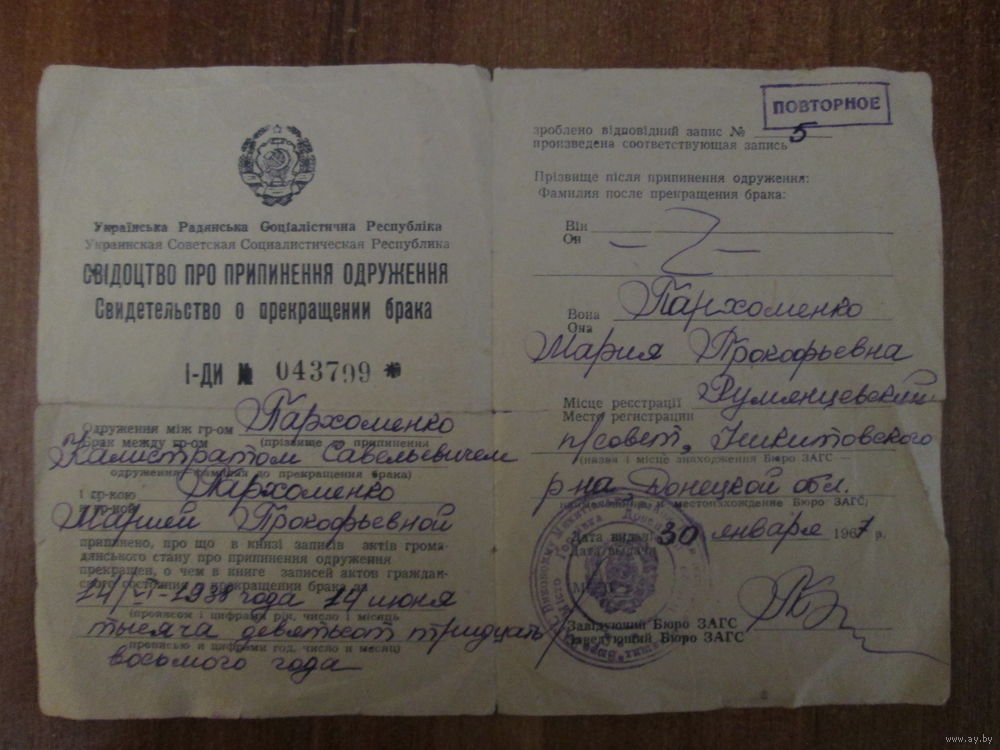 Українська Радянська Соціалістична Республіка
Украинская Советская Социалистическая Республика
СВІДОЦТВО ПРО ПРИПИНЕННЯ ОДРУЖЕННЯ
Свидетельство о прекращении брака
І-ДИ № 043799 *
Одруження між гр-ом Пархоменко
Брак между гр-ом (прізвище до припинення
Калистратом Савельевичем
одруження фамилия до прекращения брака)
і гр-кою Пархоменко
и гр-кой
Марией Прокофьевной
припинено, про що в книзі записів актів грома-
дянського стану про припинення одруження
прекращен, о чем в книге записей актов граждан-
ского состояния о прекращении брака
14/VI-1938 года 14 июня
(прописом і цифрами рік, число і місяць)
тысяча девятьсот тридцать
(прописью и цифрами год, число и месяц)
восьмого года
ПОВТОРНОЕ
зроблено відповідний запис № 5
произведена соответствующая запись
Прізвище після припинення одруження:
Фамилия после прекращения брака:
Він
Он
Вона Пархоменко
Она
Мария Прокофьевна
Місце реєстрації Румянцевский
Место регистрации
п/совет, Никитовского
(назва і місце знаходження Бюро ЗАГС —
р-на Донецкой обл.
наименование и местонахождение Бюро ЗАГС)
Дата видачі 30 января 1967 р.
Дата выдачи
Завідуючий Бюро ЗАГС
Заведующий Бюро ЗАГС
www.ay.by